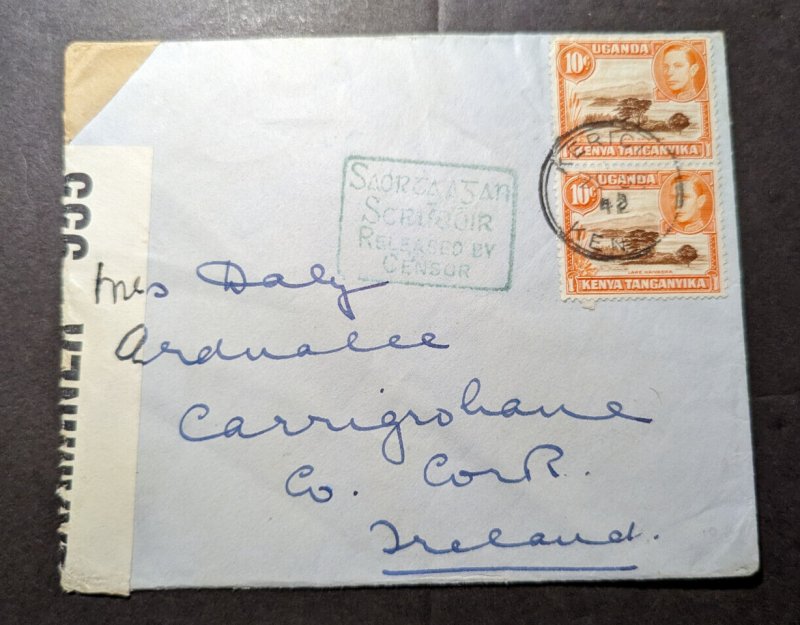 UGANDA
10c
KENYA TANGANYIKA
UGANDA
10c
LAKE NAIVASHA
KENYA TANGANYIKA
42
KEN
SAORTA AG AN
SCRÚDÓIR
RELEASED BY
CENSOR
Mrs Daly
Ardnalee
Carrigrohane
Co. Cork.
Ireland.